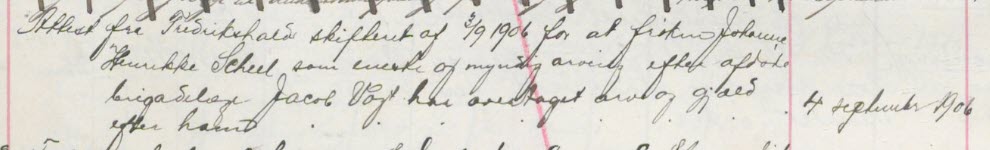 Attest fra Fredrikshald skifteret af 3/9 1906 for at frøken Johanne
Henrikke Scheel som eneste og myndig arving efter afdøde
brigadelæge Jacob Vogt har overtaget arv og gjæld
efter ham 4 september 1906